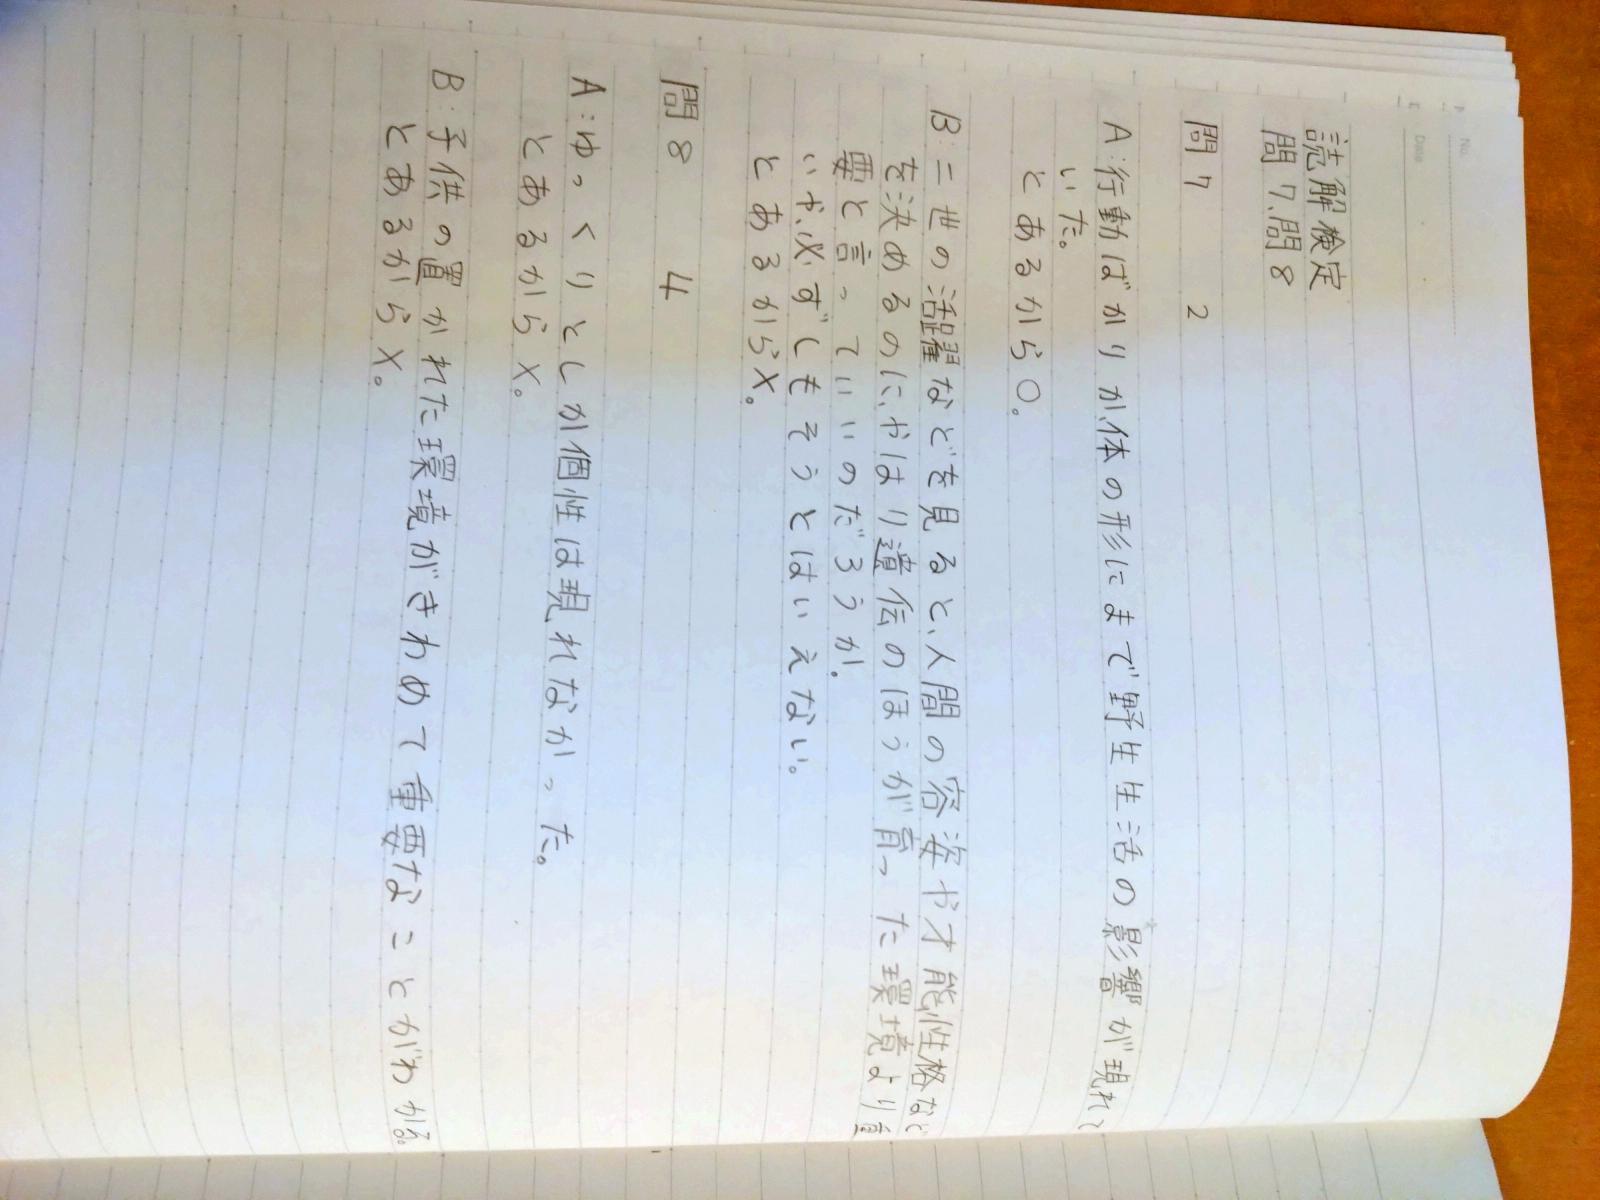 No.
Date
読解検定
問7、問8
問7 2
A:行動ばかりか、体の形にまで野生生活の影響が現れて
いた。
とあるから〇。
B:二世の活躍などを見ると、人間の容姿や才能性格など
を決めるのに、やはり遺伝のほうが育った環境より重
要と言っていいのだろうか。
いや、必ずしもそうとはいえない。
とあるから×。
問8 4
A:ゆっくりとしか個性は現れなかった。
とあるから×。
B:子供の置かれた環境がきわめて重要なことがわかる。
とあるから×。